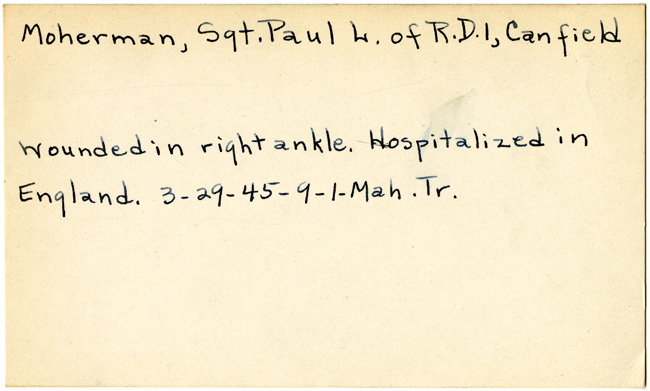 Moherman, Sgt. Paul L. of R.D.1, Canfield
Wounded in right ankle. Hospitalized in
England. 3-29-45-9-1-Mah. Tr.